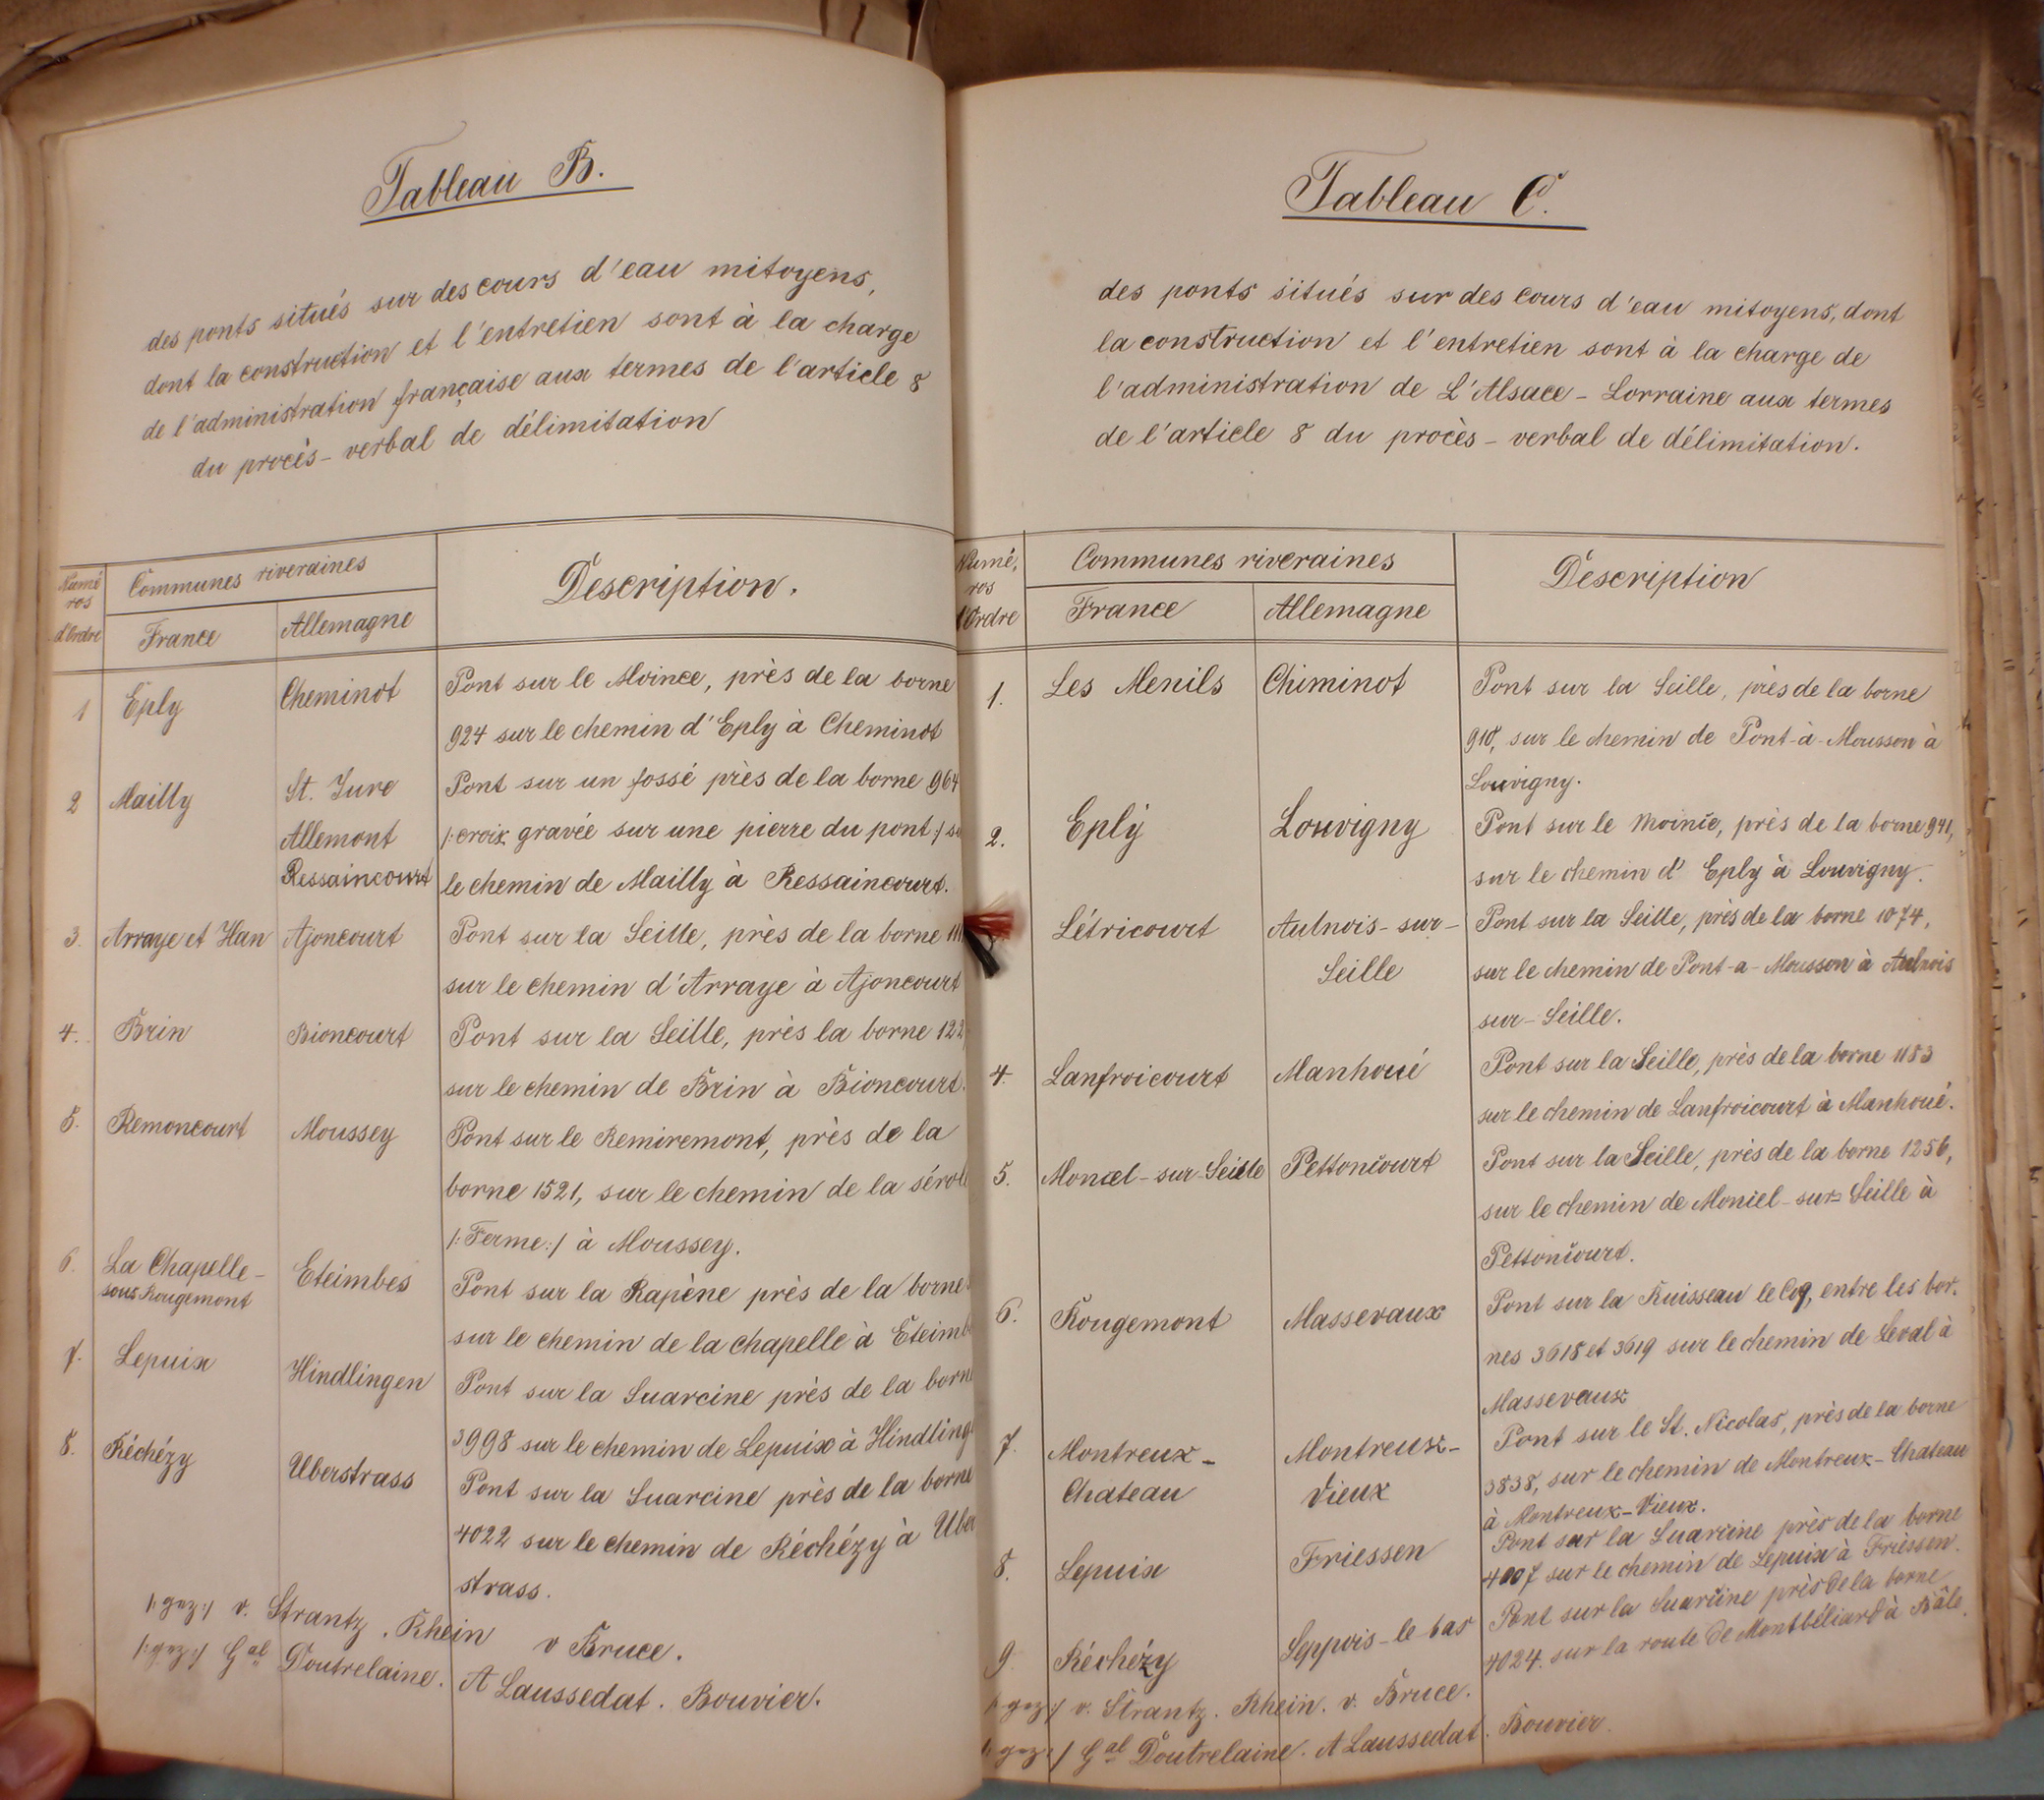 Tableau B.
des ponts situés sur des cours d'eau mitoyens,
dont la construction et l'entretien sont à la charge
de l'administration française aux termes de l'article 8
du procès-verbal de délimitation
Numé
ros
d'Ordre
Communes riveraines
France
Allemagne
Description.
1 Eply Cheminot Pont sur le Moince, près de la borne
924 sur le chemin d'Eply à Cheminot
2 Mailly St. Jure Pont sur un fossé près de la borne 964
Allemont /: croix gravée sur une pierre du pont :/
Ressaincourt le chemin de Mailly à Ressaincourt.
3. Arraye et Han Ajoncourt Pont sur la Seille, près de la borne
sur le chemin d'Arraye à Ajoncourt
4. Brin Bioncourt Pont sur la Seille, près la borne 122
sur le chemin de Brin à Bioncourt.
5. Remoncourt Moussey Pont sur le Remiremont, près de la
borne 1521, sur le chemin de la
/: Ferme :/ à Moussey.
6. La Chapelle- Eteimbes Pont sur la Rapène près de la borne
sous Rougemont
sur le chemin de la chapelle à Eteimb
7. Lepuix Hindlingen Pont sur la Suarcine près de la borne
3998 sur le chemin de Lepuix à Hindling
8. Réchézy Uberstrass Pont sur la Suarcine près de la borne
4022 sur le chemin de Réchézy à Uber
strass.
/: gez :/ v. Strantz. Rhein v Bruce.
/: gez :/ Gal Doutrelaine. A Laussedat. Bouvier.
Tableau C.
des ponts situés sur des cours d'eau mitoyens, dont
la construction et l'entretien sont à la charge de
l'administration de L'Alsace-Lorraine aux termes
de l'article 8 du procès-verbal de délimitation.
Numé,
ros
d'Ordre
Communes riveraines
France
Allemagne
Description
1. Les Menils Chiminot Pont sur la Seille, près de la borne
910, sur le chemin de Pont-à-Mousson à
Louvigny.
2. Eply Louvigny Pont sur le Moince, près de la borne 941,
sur le chemin d' Eply à Louvigny.
Létricourt Aulnois-sur- Pont sur la Seille, près de la borne 1074,
Seille sur le chemin de Pont-a-Mousson à Aulnois
sur-Seille.
4. Lanfroicourt Manhoué Pont sur la Seille, près de la borne 1183
sur le chemin de Lanfroicourt à Manhoué.
5. Moncel-sur-Seille Pettoncourt Pont sur la Seille, près de la borne 1256,
sur le chemin de Moncel-sur-Seille à
Pettoncourt.
6. Rougemont Massevaux Pont sur la Ruisseau le Coq, entre les bor.
nes 3618 et 3619 sur le chemin de Leval à
Massevaux
7. Montreux- Montreux- Pont sur le St. Nicolas, près de la borne
Chateau Vieux 3838, sur le chemin de Montreux-Chateau
à Montreux-Vieux.
8. Lepuix Friessen Pont sur la Suarcine près de la borne
4007 sur le chemin de Lepuix à Friessen.
9. Réchézy Seppois-le-bas Pont sur la Suarcine près de la borne
4024. sur la route de Montbéliard à Bâle.
/: gez :/ v. Strantz. Rhein. v. Bruce.
/: gez :/ Gal Doutrelaine. A Laussedat. Bouvier.